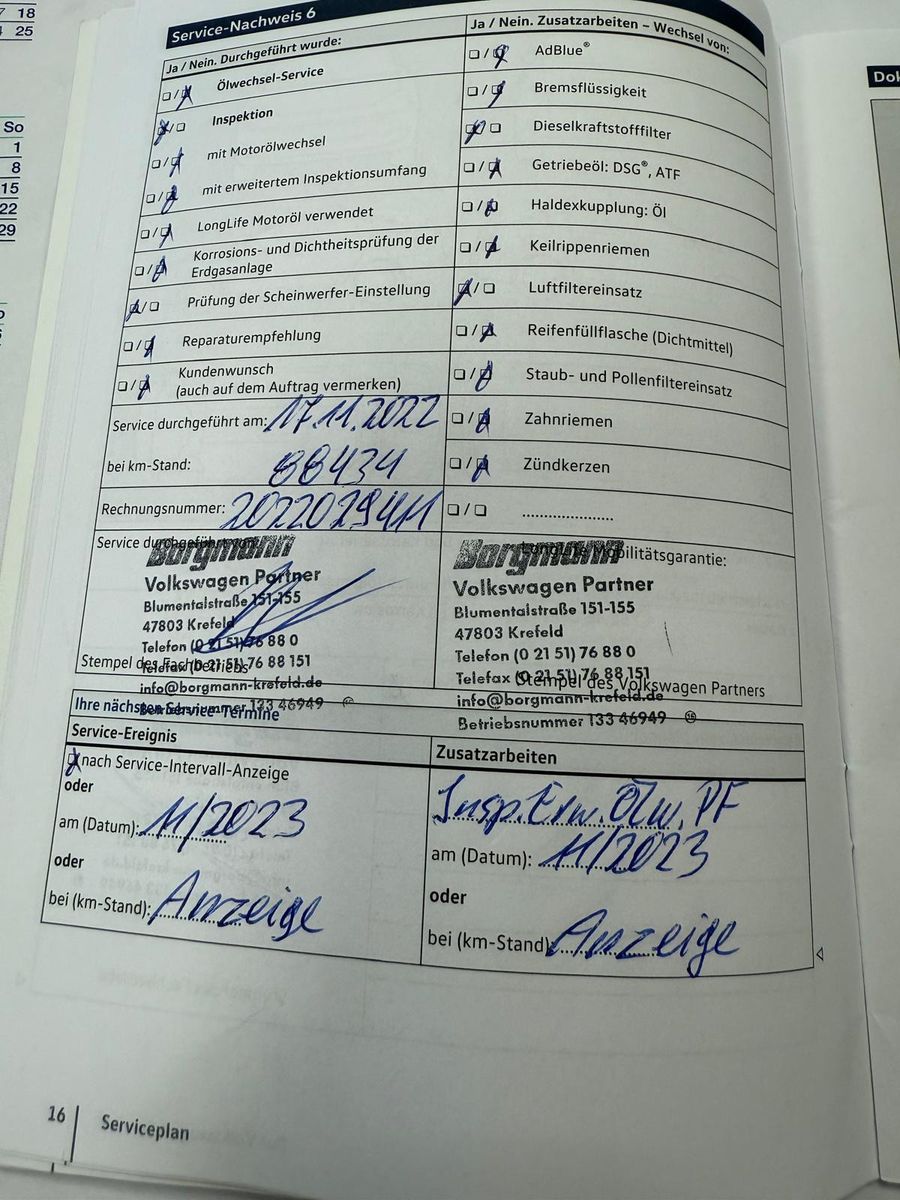 7 18
4 25
So
1
8
15
22
29
Service-Nachweis 6
Ja / Nein. Durchgeführt wurde:
Ölwechsel-Service
Inspektion
mit Motorölwechsel
mit erweitertem Inspektionsumfang
LongLife Motoröl verwendet
Korrosions- und Dichtheitsprüfung der
Erdgasanlage
Prüfung der Scheinwerfer-Einstellung
Reparaturempfehlung
Kundenwunsch
(auch auf dem Auftrag vermerken)
Service durchgeführt am: 17.11.2022
bei km-Stand: 88434
Rechnungsnummer: 2022029411
Service durchgeführt von:
Borgmann
Volkswagen Partner
Blumentalstraße 151-155
47803 Krefeld
Telefon (0 21 51) 76 88 0
Telefax (0 21 51) 76 88 151
Stempel des Fachbetriebs
info@borgmann-krefeld.de
Betriebsnummer 133 46949
Ja / Nein. Zusatzarbeiten – Wechsel von:
AdBlue®
Bremsflüssigkeit
Dieselkraftstofffilter
Getriebeöl: DSG®, ATF
Haldexkupplung: Öl
Keilrippenriemen
Luftfiltereinsatz
Reifenfüllflasche (Dichtmittel)
Staub- und Pollenfiltereinsatz
Zahnriemen
Zündkerzen
....................
LongLife Mobilitätsgarantie:
Borgmann
Volkswagen Partner
Blumentalstraße 151-155
47803 Krefeld
Telefon (0 21 51) 76 88 0
Telefax (0 21 51) 76 88 151
Stempel des Volkswagen Partners
info@borgmann-krefeld.de
Betriebsnummer 133 46949
Ihre nächsten Service-Termine
Service-Ereignis
nach Service-Intervall-Anzeige
oder
am (Datum): 11/2023
oder
bei (km-Stand): Anzeige
Zusatzarbeiten
Insp. Erw. Ölw. PF
am (Datum): 11/2023
oder
bei (km-Stand): Anzeige
16
Serviceplan
Dok